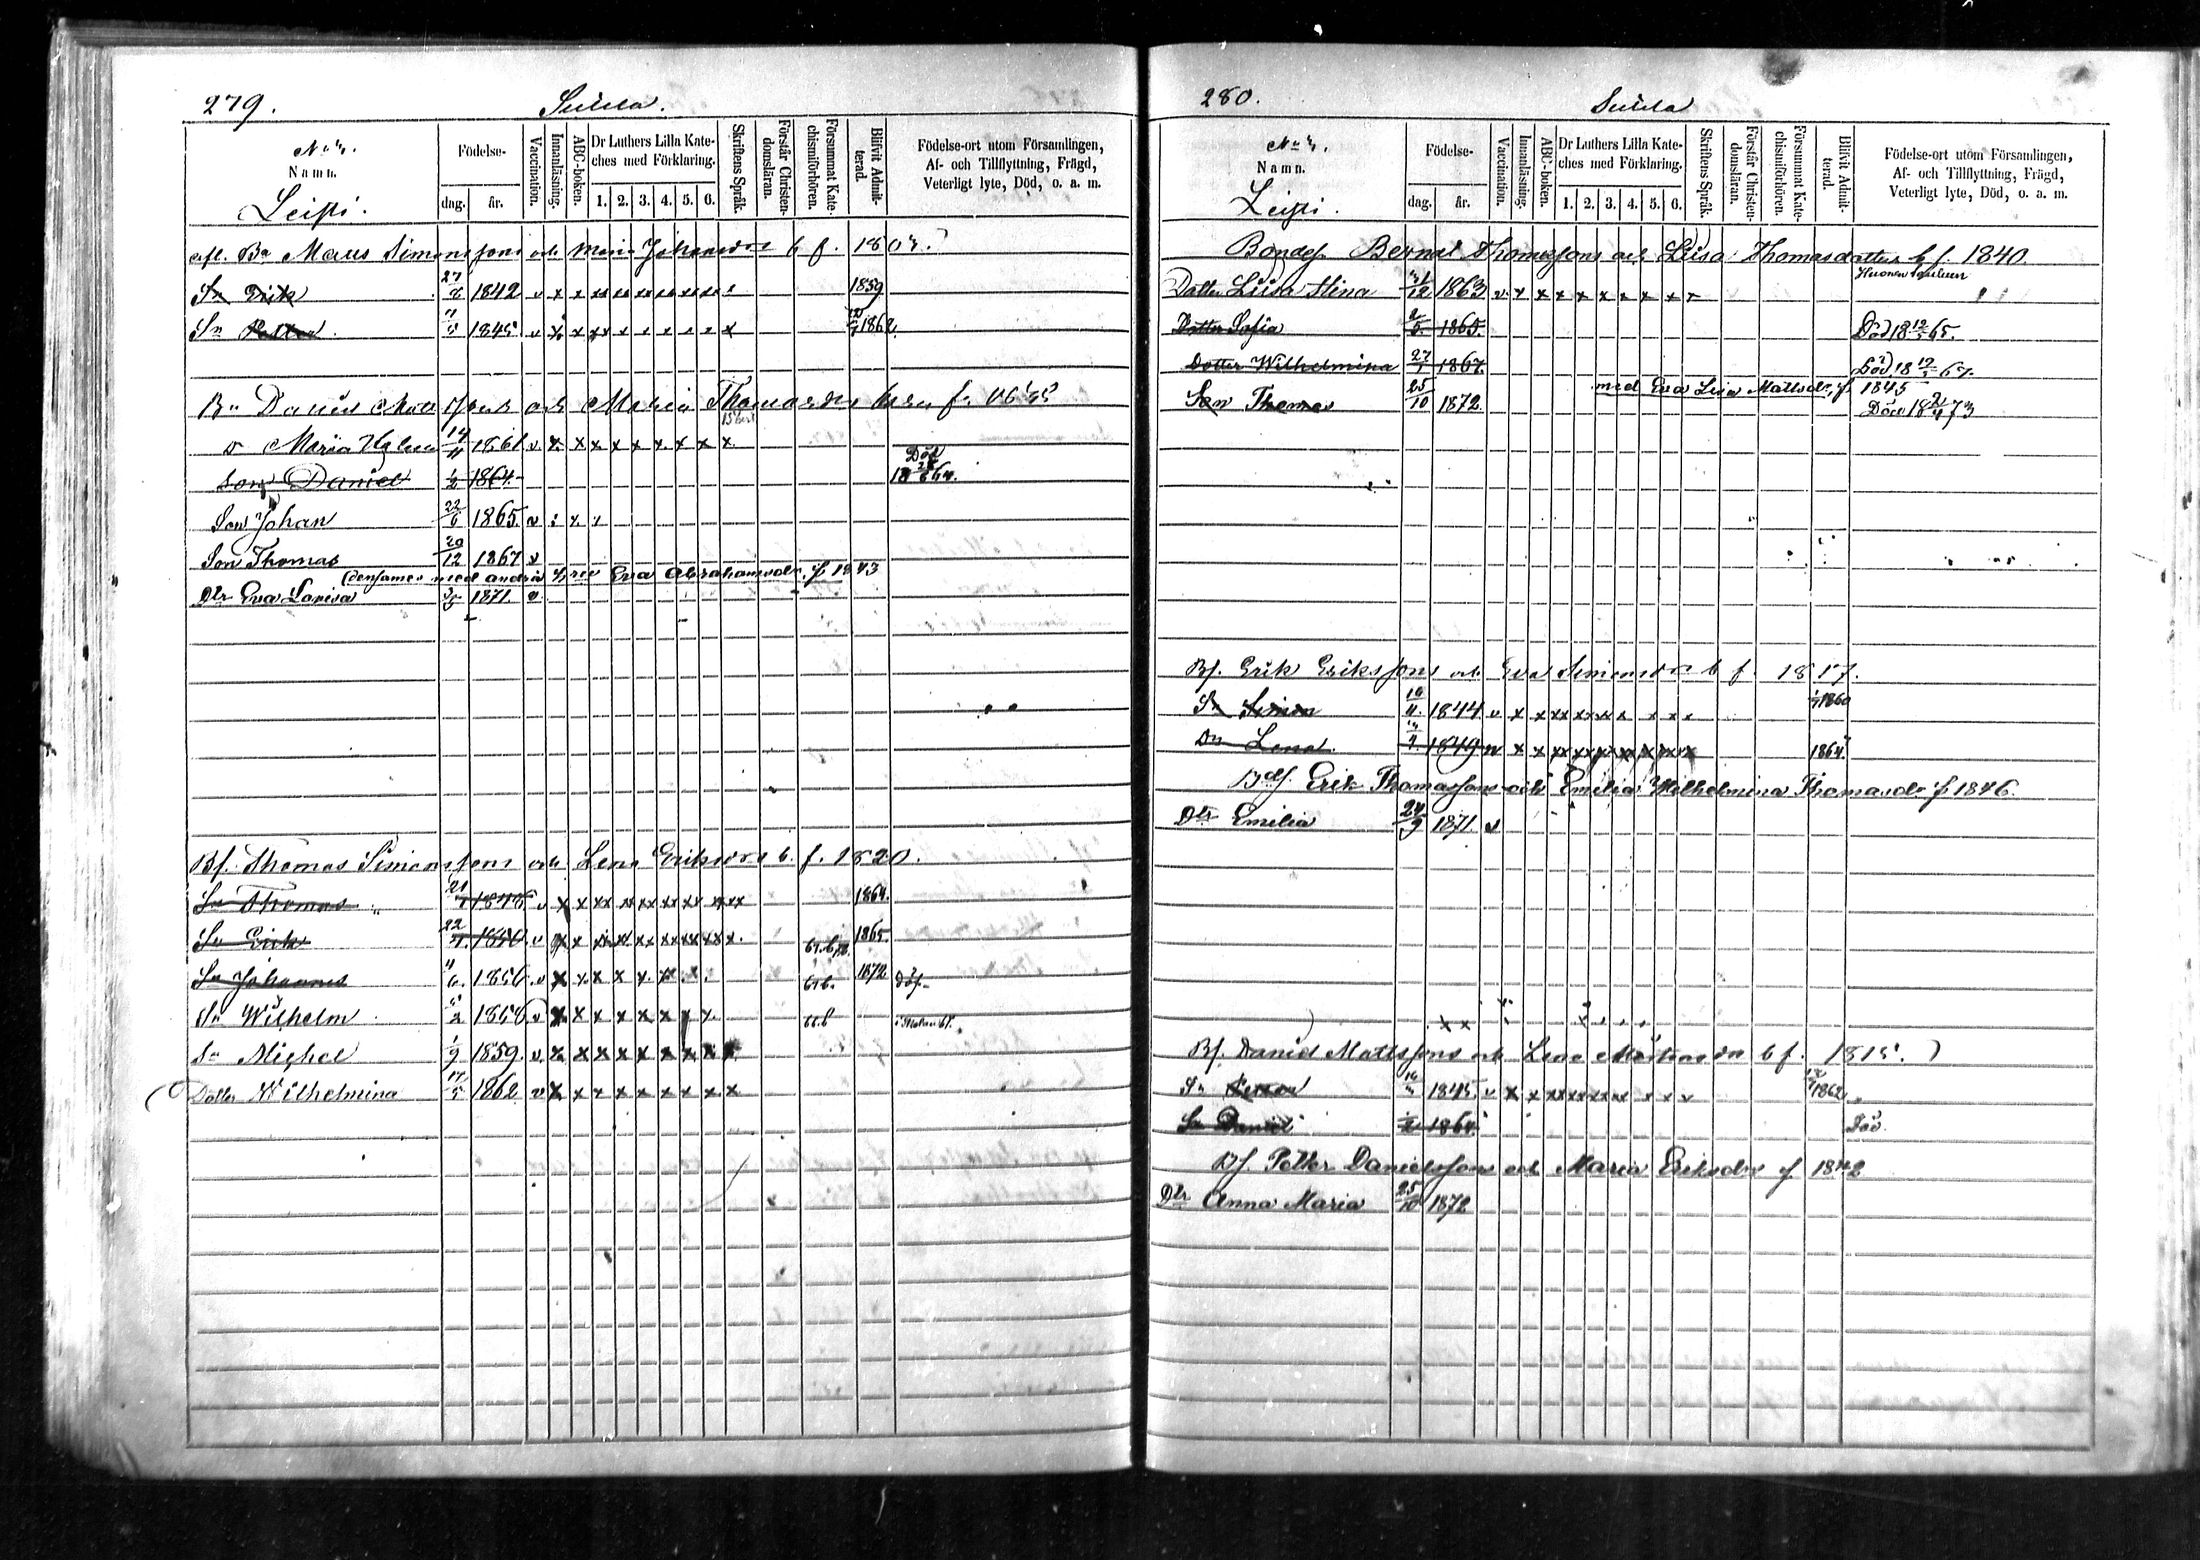 279. Suula.
No 4.
Namn.
Leisti.
Födelse-
dag. år.
Vaccination.
Innanläsning.
ABC-boken.
Dr Luthers Lilla Kate-
ches med Förklaring.
1. 2. 3. 4. 5. 6.
Skriftens Språk.
Förstår Christen-
domsläran.
Försummat Kate-
chismiförhören.
Blifvit Admit-
terad.
Födelse-ort utom Församlingen,
Af- och Tillflyttning, Frägd,
Veterligt lyte, Död, o. a. m.
afl. Bn Maus Simonssons och Maria Johansdrs b f.
Sn Erik 27/8 1842 v x x xx xx xx xx xx xx x 1859
Sn Petter 1845 v x x xx x x x x x x 1862
Bn Daniel Matts och Maria Thomasdrs
d Maria Helena 14/11 1861 v x x x x x x x x x
Son Daniel 1/2 1864 Död 64.
Son Johan 22/6 1865 v
Son Thomas 20/12 1867 v
(densames med andra hru Eva Abrahamsdr. f 1843
Dtr Eva Lovisa 1871. v
Bf. Thomas Simonssons och Lena Eriksdrs b. f. 1820.
Sn Thomas 21 v x x xx xx xx xx xx xx xx 1864.
Sn Erik 22 1850 v x x xx xx xx xx xx xx x. 1865.
Sn Johannes 6. 1856 v x x x x x x 1872 död.
Sn Wilhelm 2 1858 v x x x x x x x x. 66.b
Sn Michel 1/9 1859 v x x x x x x x x x
Dotter Wilhelmina 17/5 1862 v x x x x x x x x x
280. Suula
No 4.
Namn.
Leisti.
Födelse-
dag. år.
Vaccination.
Innanläsning.
ABC-boken.
Dr Luthers Lilla Kate-
ches med Förklaring.
1. 2. 3. 4. 5. 6.
Skriftens Språk.
Förstår Christen-
domsläran.
Försummat Kate-
chismiförhören.
Blifvit Admit-
terad.
Födelse-ort utom Församlingen,
Af- och Tillflyttning, Frägd,
Veterligt lyte, Död, o. a. m.
Bondes. Berndt Thomassons och Liisa Thomasdotters b f. 1840.
Dotter Liisa Stina 31/12 1863 v. x x x x x x x x x
Dotter Sofia 2/5. 1865. Död 18 12/5 65.
Dotter Wilhelmina 27/1 1867. Död 18 67.
med Eva Lisa Mattsdr f. 1845
Son Thomas 25/10 1872. Död 18 2/4 73
Bf. Erik Erikssons och Eva Simonsdrs b f. 1817.
Sn Simon 11. 1844 v x x xx xx xx x x x x 1860
Dr Lena 1849 v x x xx xx xx xx xx xx x 1864.
Bdf. Erik Thomassons och Emilia Wilhelmina Thomasdr f 1846.
Dtr Emilia 24/9 1871. v
Bf. Daniel Mattssons och Lena Mårtensdr b f. 1815.
Sn 1845 v x x xx xx xx xx x x x 1862
Sn Daniel 1/2 1864 Död.
Bf. Petter Danielssons och Maria Eriksdrs f 1842
Dtr Anna Maria 25/10 1872